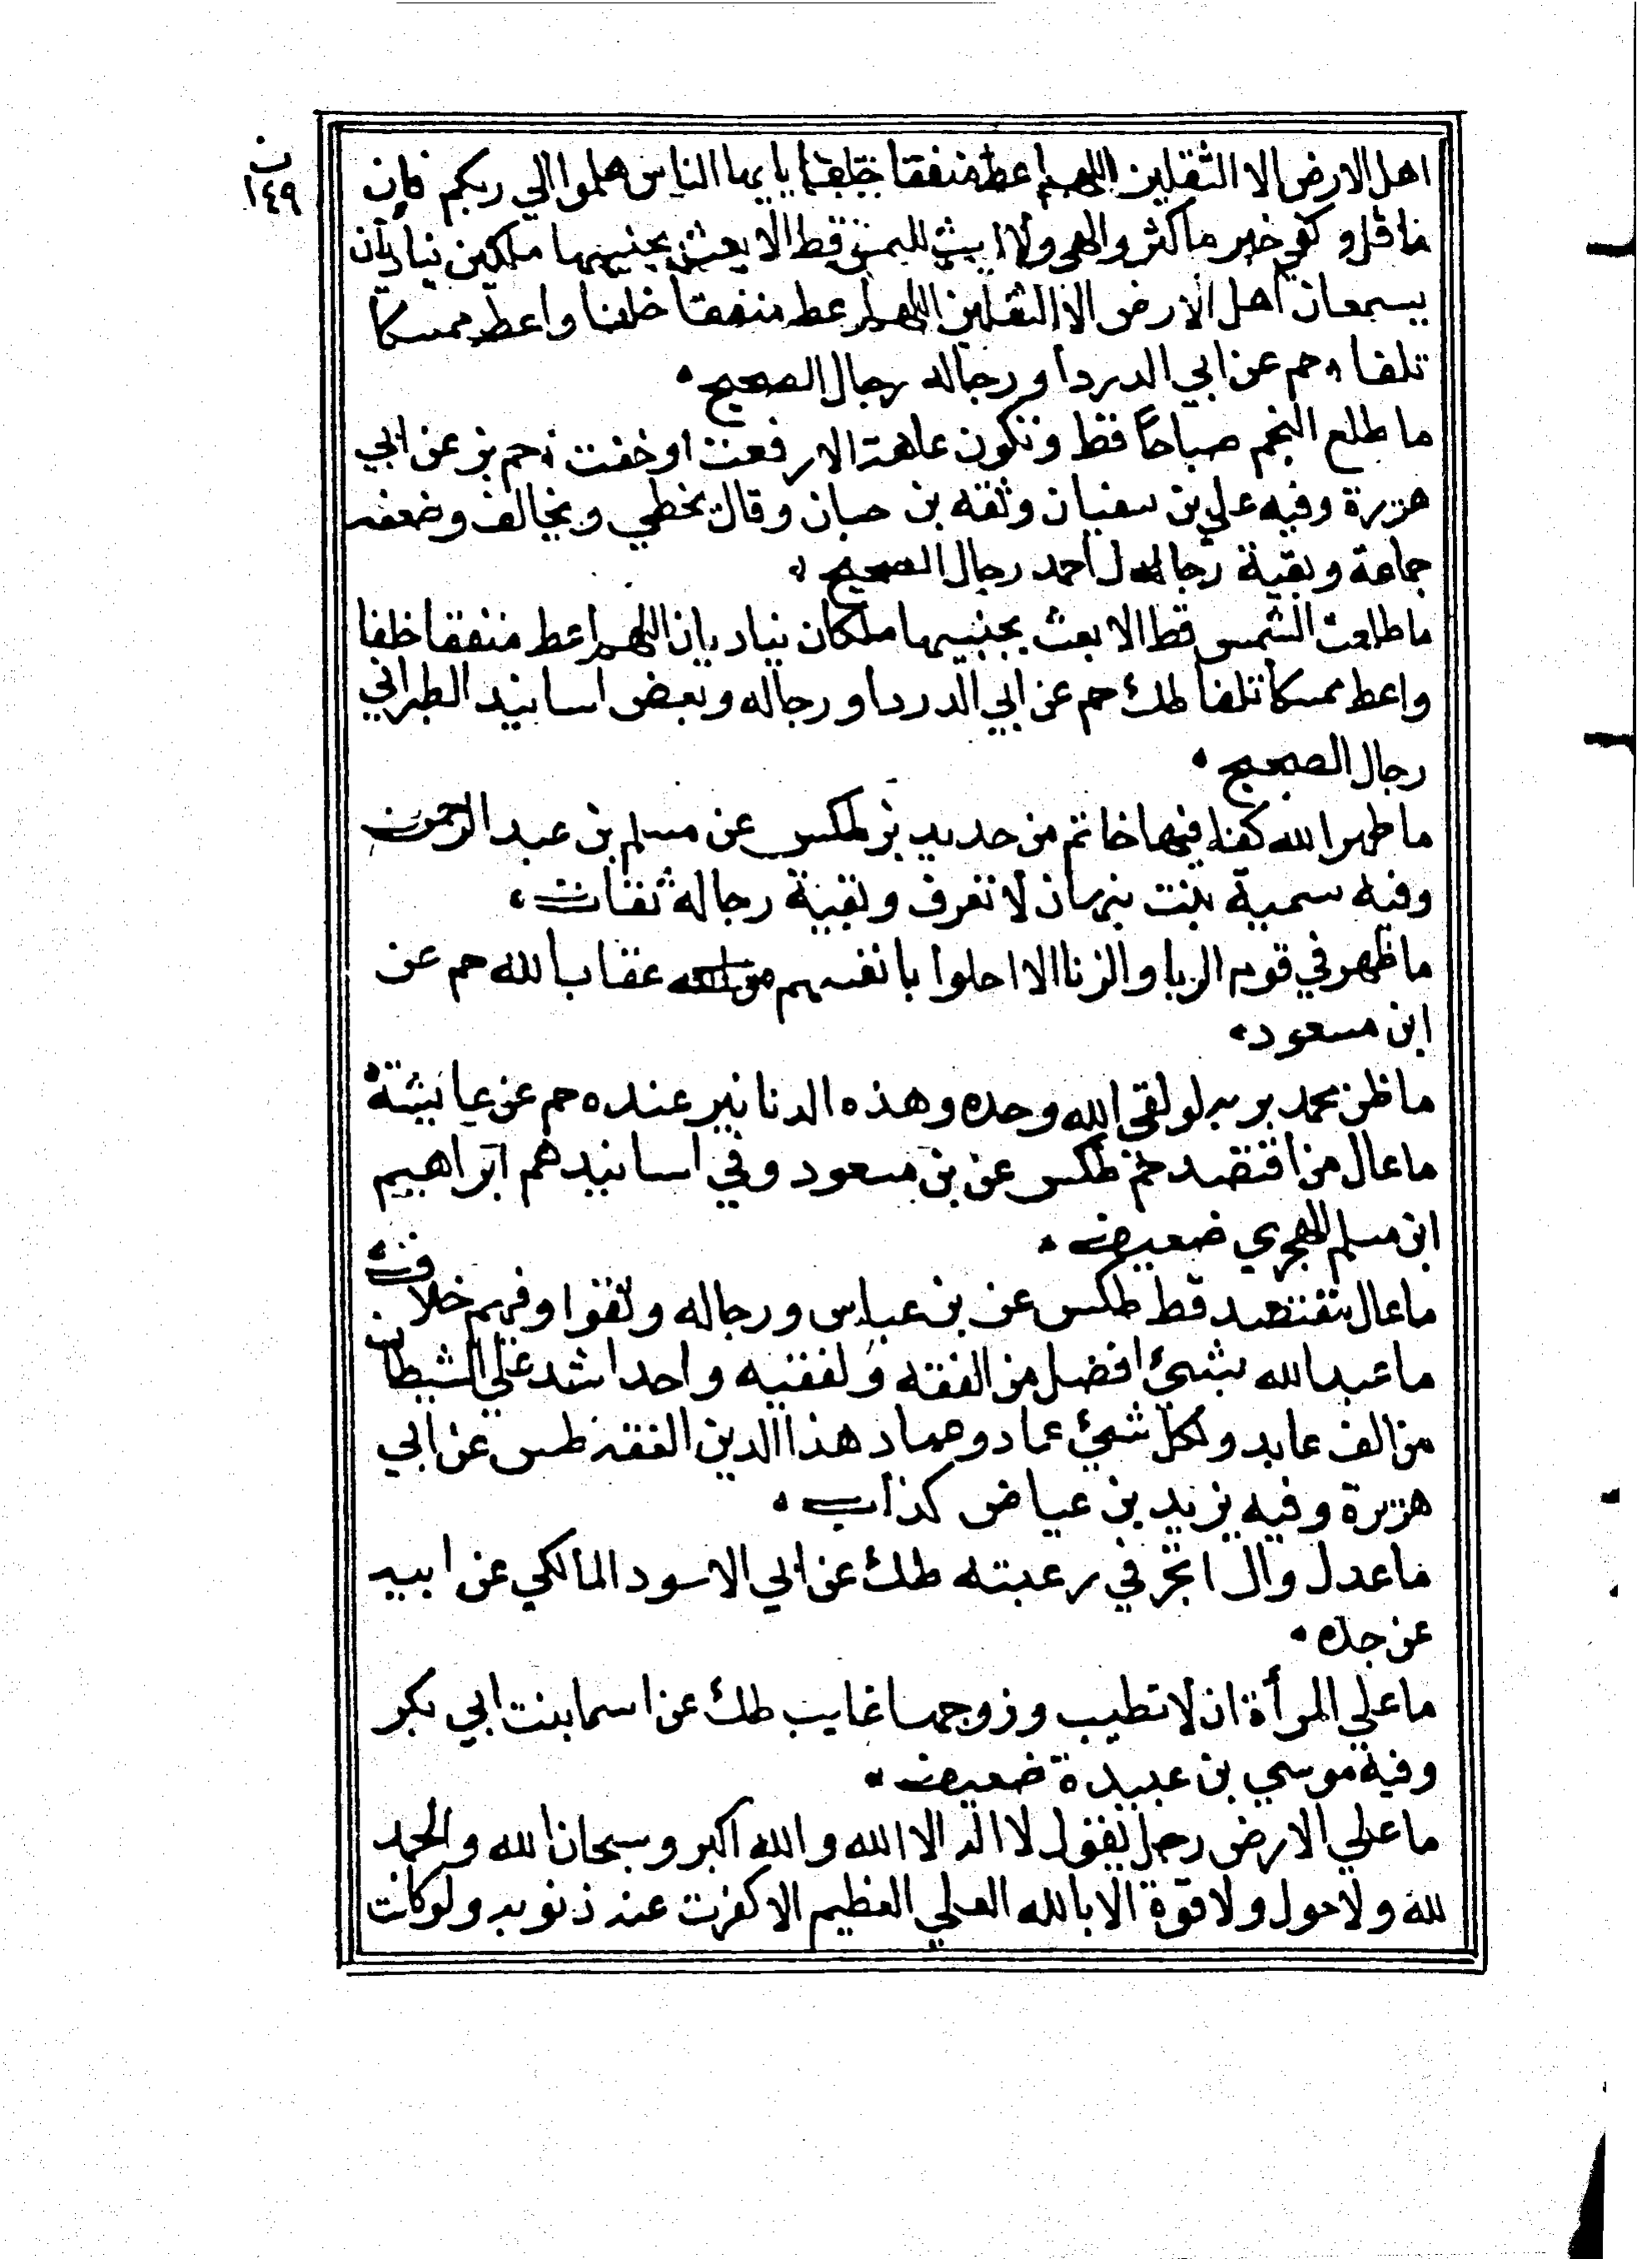 ن
١٤٩
اهل الارض الا الثقلين اللهم اعط منفقا خلفا يا ايها الناس هلموا الي ربكم فان
ما قل وكفي خير ما كثر والهي ولا ابت الشمس قط الا بعث بجنبيها ملكين يناديان
يسمعان اهل الارض الا الثقلين اللهم اعط منفقا خلفا واعط ممسكا
تلفا حم عن ابي الدردا ورجاله رجال الصحيح
ما طلع النجم صباحًا قط وتكون عاهة الا رفعت او خفت حم بز عن ابي
هريرة وفيه علي بن سفيان وثقه بن حبان وقال يخطي ويخالف وضعفه
جماعة وبقية رجال احمد رجال الصحيح
ما طلعت الشمس قط الا بعث بجنبيها ملكان يناديان اللهم اعط منفقا خلفا
واعط ممسكا تلفا طك حم عن ابي الدردا ورجاله وبعض اسانيد الطبراني
رجال الصحيح
ما طهر الله كفا فيها خاتم من حديد بز طكس عن مسلم بن عبد الرحمن
وفيه سمية بنت نبهان لا تعرف وبقية رجاله ثقات
ما ظهر في قوم الربا والزنا الا احلوا بانفسهم عقاب الله حم عن
ابن مسعود
ما ظن محمد بربه لو لقي الله وحده وهذه الدنانير عنده حم عن عايشة
ما عال من اقتصد حم طكس عن بن مسعود وفي اسانيدهم ابراهيم
ابن مسلم الهجري ضعيف
ما عال مقتصد قط طكس عن بن عباس ورجاله وثقوا وفيهم خلاف
ما عبد الله بشيئ افضل من الفقه ولفقيه واحد اشد علي الشيطان
من الف عابد ولكل شيئ عماد وعماد هذا الدين الفقه طس عن ابي
هريرة وفيه يزيد بن عياض كذاب
ما عدل وال اتجر في رعيته طك عن ابي الاسود المالكي عن ابيه
عن جده
ما علي المرأة ان لا تطيب وزوجها غايب طك عن اسما بنت ابي بكر
وفيه موسي بن عبيدة ضعيف
ما علي الارض رجل يقول لا اله الا الله والله اكبر وسبحان الله والحمد
لله ولا حول ولا قوة الا بالله العلي العظيم الا كفرت عنه ذنوبه ولو كانت